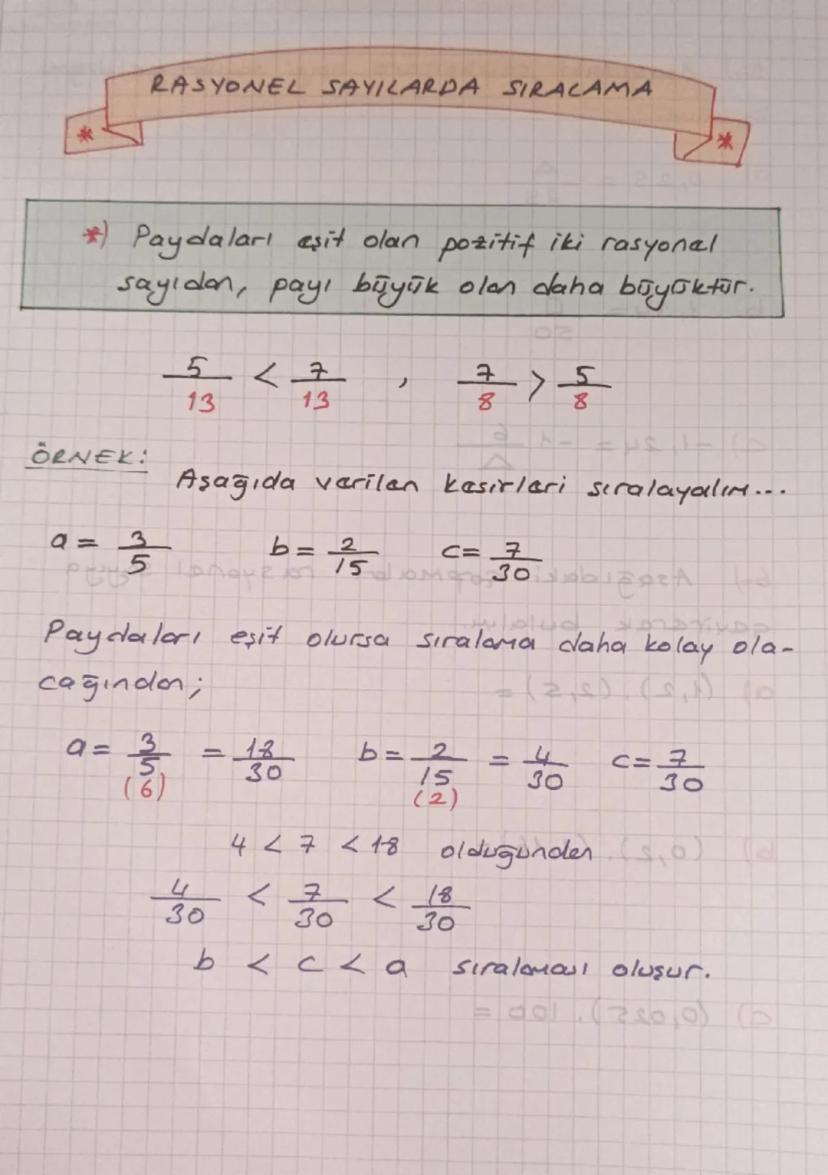 RASYONEL SAYILARDA SIRALAMA
* *
*) Paydaları eşit olan pozitif iki rasyonel
sayıdan, payı büyük olan daha büyüktür.
5/13 < 7/13 , 7/8 > 5/8
ÖRNEK:
Aşağıda verilen kesirleri sıralayalım...
a = 3/5 b = 2/15 c = 7/30
Paydaları eşit olursa sıralama daha kolay ola-
cağından;
a = 3/5 = 18/30 b = 2/15 = 4/30 c = 7/30
(6) (2)
4 < 7 < 18 olduğundan
4/30 < 7/30 < 18/30
b < c < a sıralaması oluşur.